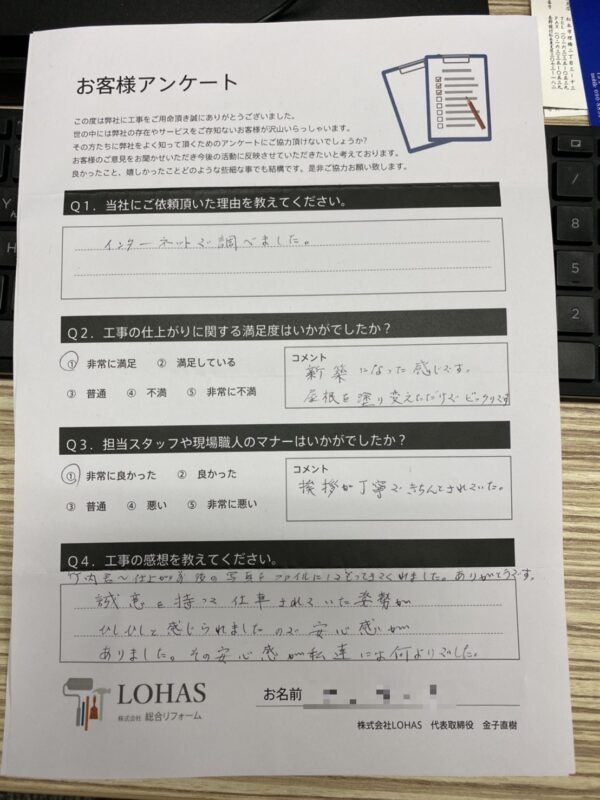 お客様アンケート
この度は弊社に工事をご用命頂き誠にありがとうございました。
世の中には弊社の存在やサービスをご存知ないお客様が沢山いらっしゃいます。
その方たちに弊社をよく知って頂くためのアンケートにご協力頂けないでしょうか?
お客様のご意見をお聞かせいただき今後の活動に反映させていただきたいと考えております。
良かったこと、嬉しかったことどのような些細な事でも結構です。是非ご協力お願い致します。
Q1. 当社にご依頼頂いた理由を教えてください。
インターネットで調べました。
Q2. 工事の仕上がりに関する満足度はいかがでしたか?
① 非常に満足 ② 満足している
③ 普通 ④ 不満 ⑤ 非常に不満
コメント
新築になった感じです。
屋根を塗り変えただけでビックリです
Q3. 担当スタッフや現場職人のマナーはいかがでしたか?
① 非常に良かった ② 良かった
③ 普通 ④ 悪い ⑤ 非常に悪い
コメント
挨拶が丁寧できちんとされていた。
Q4. 工事の感想を教えてください。
の写真をファイルにしてもってきてくれました。ありがとうです。
誠意を持って仕事されていた姿勢が
ひしひしと感じられましたので安心感が
ありました。その安心感が私達には何よりでした。
LOHAS
株式会社 総合リフォーム
お名前
株式会社LOHAS 代表取締役 金子直樹